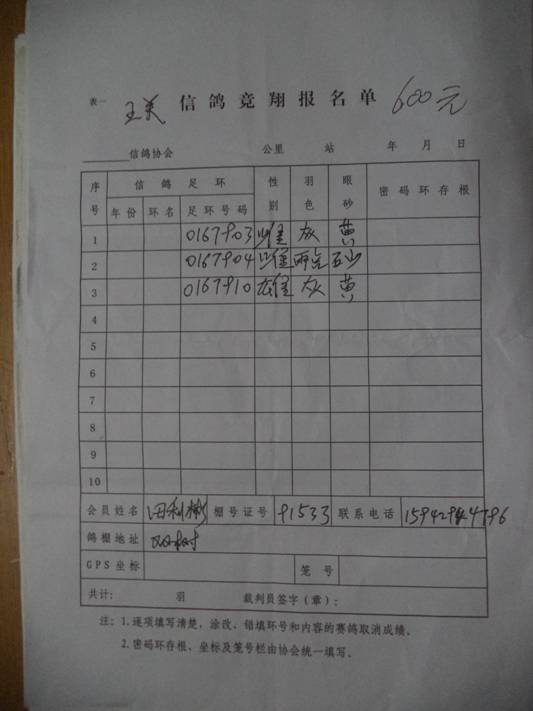 表一 王美 信鸽竞翔报名单 600元
信鸽协会 公里 站 年 月 日
序号 信鸽足环 性别 羽色 眼砂 密码环存根
年份 环名 足环号码
1 0167903 雌 灰 黄
2 0167904 雌 雨点 石少
3 0167910 雄 灰 黄
4
5
6
7
8
9
10
会员姓名 田利彬 棚号证号 91533 联系电话
鸽棚地址 双树
GPS坐标 笼号
共计: 羽 裁判员签字(章):
注:1.逐项填写清楚,涂改、错填环号和内容的赛鸽取消成绩。
2.密码环存根、坐标及笼号栏由协会统一填写。